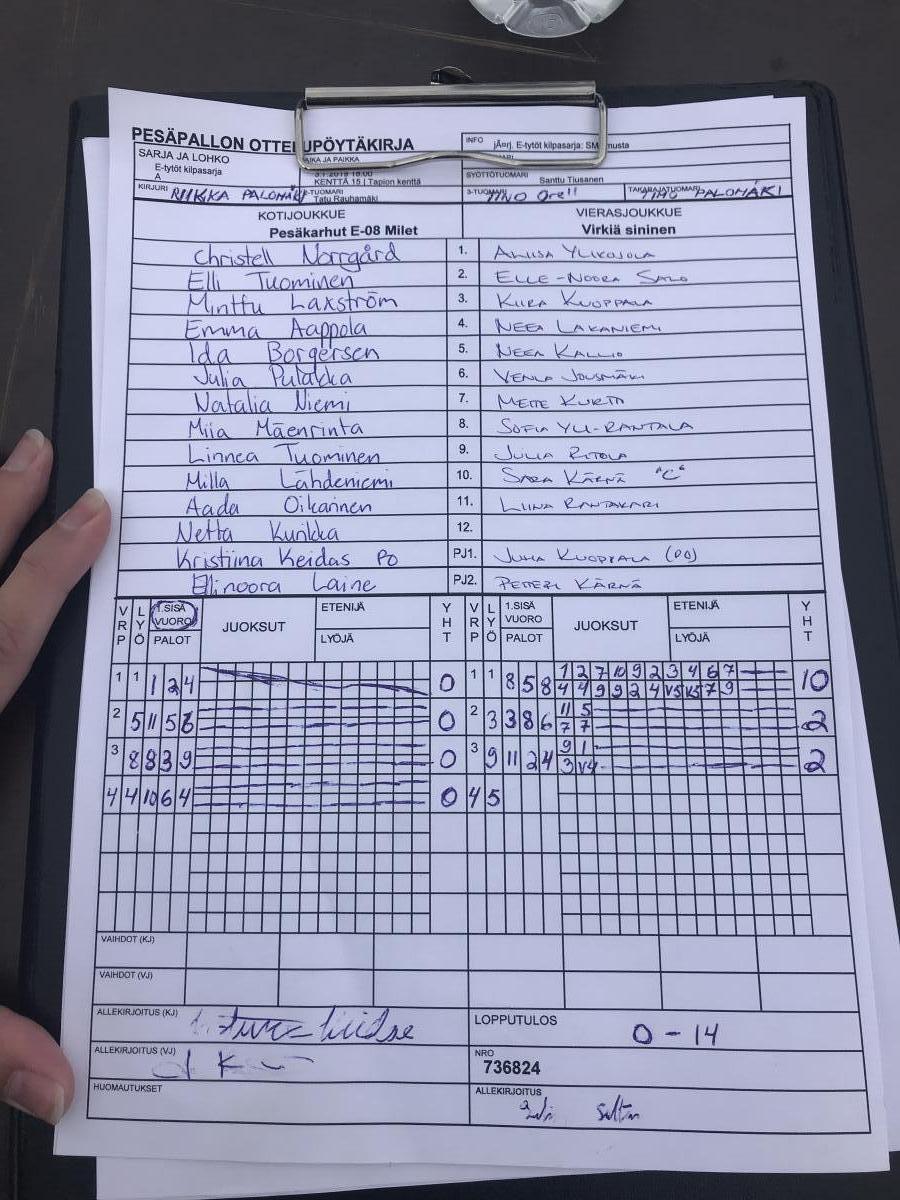 PESÄPALLON OTTELUPÖYTÄKIRJA
INFO jÃ¤rj. E-tytöt kilpasarja: SM
SARJA JA LOHKO
E-tytöt kilpasarja
A
AIKA JA PAIKKA
18:00
KENTTÄ 15 | Tapion kenttä
SYÖTTÖTUOMARI
Santtu Tiusanen
KIRJURI RIIKKA PALOMÄKI
2-TUOMARI
Tatu Rauhamäki
3-TUOMARI
TAKARAJATUOMARI PALOMÄKI
KOTIJOUKKUE VIERASJOUKKUE
Pesäkarhut E-08 Milet Virkiä sininen
Christell Norrgård 1. ANIISA YLIKOJOLA
Elli Tuominen 2. ELLE-NOORA SALO
Minttu Laxström 3. KIIRA KUOPPALA
Emma Aappola 4. NEEA LAKANIEMI
Ida Borgersen 5. NEEA KALLIO
Julia Pulakka 6. VENLA JOUSMÄKI
Natalia Niemi 7. METTE KURTTI
Miia Mäenrinta 8. SOFIA YLI-RANTALA
Linnea Tuominen 9. JULIA RITOLA
Milla Lähdeniemi 10. SARA KÄRNÄ "C"
Aada Oikarinen 11. LIINA RANTAKARI
Netta Kunkka 12.
Kristiina Keidas PO PJ1. JUHA KUOPPALA (PO)
Ellinoora Laine PJ2. PETERI KÄRNÄ
VRP LYÖ 1.SISÄ VUORO PALOT JUOKSUT ETENIJÄ LYÖJÄ YHT VRP LYÖ 1.SISÄ VUORO PALOT JUOKSUT ETENIJÄ LYÖJÄ YHT
1 1 1 2 4 0 1 1 8 5 8 1 2 7 10 9 2 3 4 6 7 10
4 4 9 9 2 4 V5 V5 7 9
2 5 11 5 6 0 2 3 3 8 6 11 5 2
7 7
3 8 8 3 9 0 3 9 11 2 4 9 1 2
3 V4
4 4 10 6 4 0 4 5
VAIHDOT (KJ)
VAIHDOT (VJ)
ALLEKIRJOITUS (KJ)
LOPPUTULOS 0 - 14
ALLEKIRJOITUS (VJ)
NRO
736824
HUOMAUTUKSET
ALLEKIRJOITUS